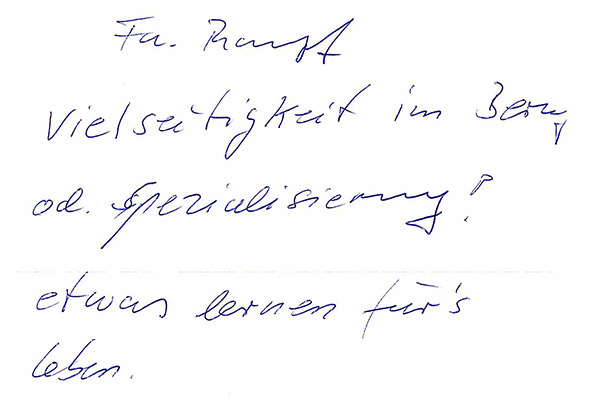 Fa. Rampf
Vielseitigkeit im Beruf
od. Spezialisierung?
etwas lernen für's
leben.